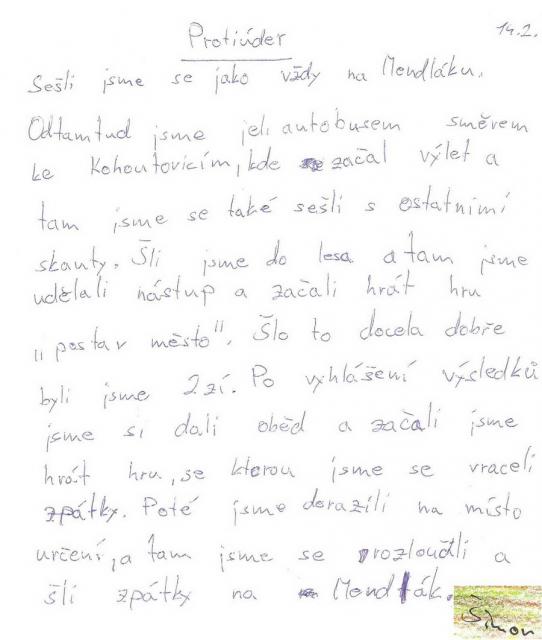 14.2.
Protiúder
Sešli jsme se jako vždy na Mendláku.
Odtamtud jsme jeli autobusem směrem
ke Kohoutovicím, kde začal výlet a
tam jsme se také sešli s ostatními
skauty. Šli jsme do lesa a tam jsme
udělali nástup a začali hrát hru
„postav město". Šlo to docela dobře
byli jsme 2.zí. Po vyhlášení výsledků
jsme si dali oběd a začali jsme
hrát hru, se kterou jsme se vraceli
zpátky. Poté jsme dorazili na místo
určení, a tam jsme se rozloučili a
šli zpátky na Mendlák.
Šimon